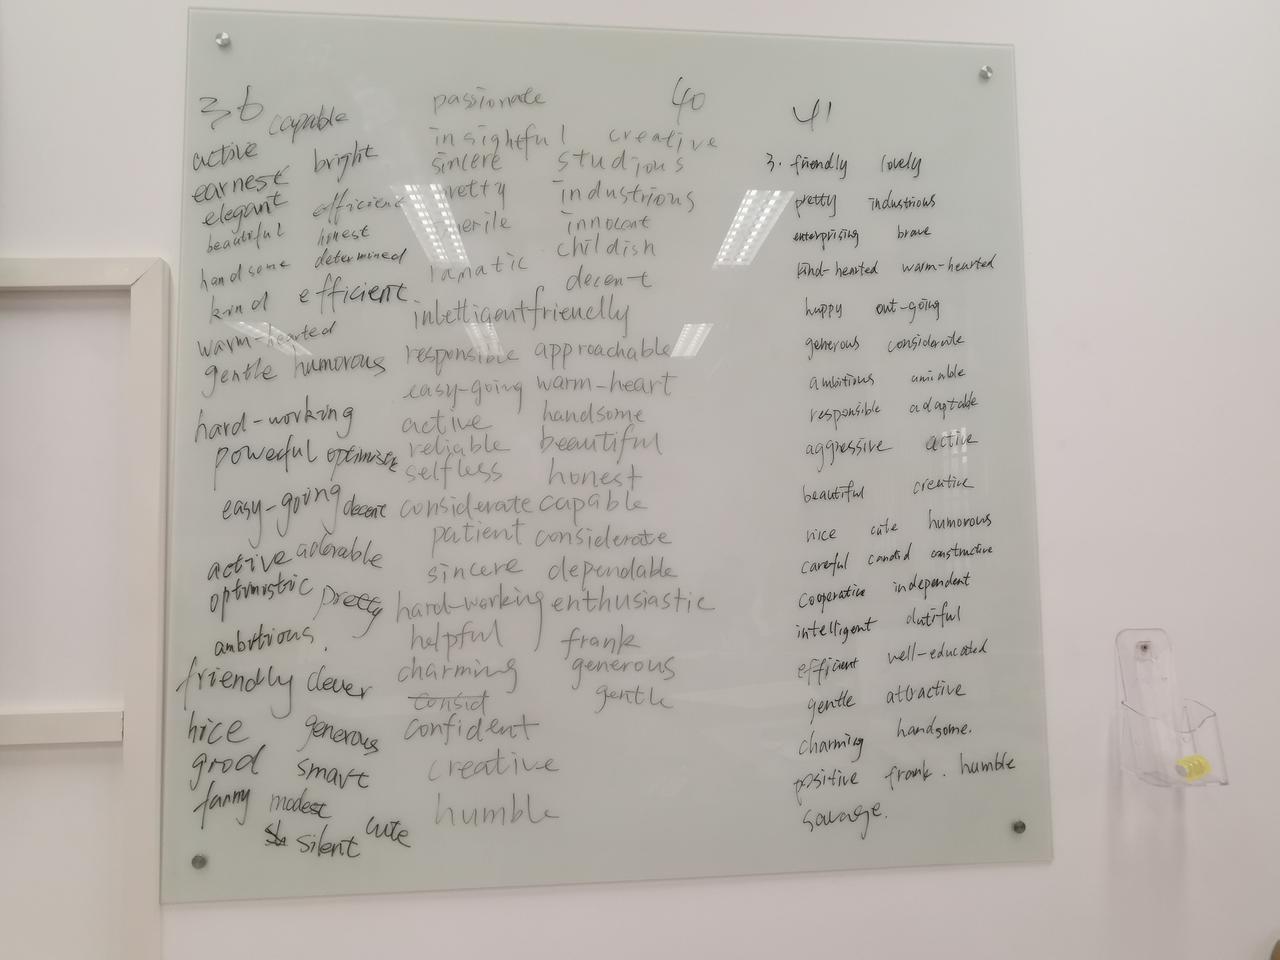 36
capable
active
earnest bright
elegant efficient
beautiful honest
handsome determined
kind efficient
warm-hearted
gentle humorous
hard-working
powerful
easy-going decent
active adorable
optimistric pretty
ambitious.
friendly clever
nice generous
good smart
funny modest
silent cute
40
passionate
insightful creative
sincere studious
pretty industrious
innocent
childish
decent
intelligent friendly
responsible approachable
easy-going warm-heart
active handsome
reliable beautiful
selfless honest
considerate capable
patient considerate
sincere dependable
hard-working enthusiastic
helpful frank
charming generous
consid gentle
confident
creative
humble
41
3. friendly lovely
pretty industrious
enterprising brave
kind-hearted warm-hearted
happy out-going
generous considerate
ambitious amiable
responsible adaptable
aggressive active
beautiful creative
nice cute humorous
careful candid constructive
cooperative independent
intelligent dutiful
efficient well-educated
gentle attractive
charming handsome.
positive frank. humble
savage.